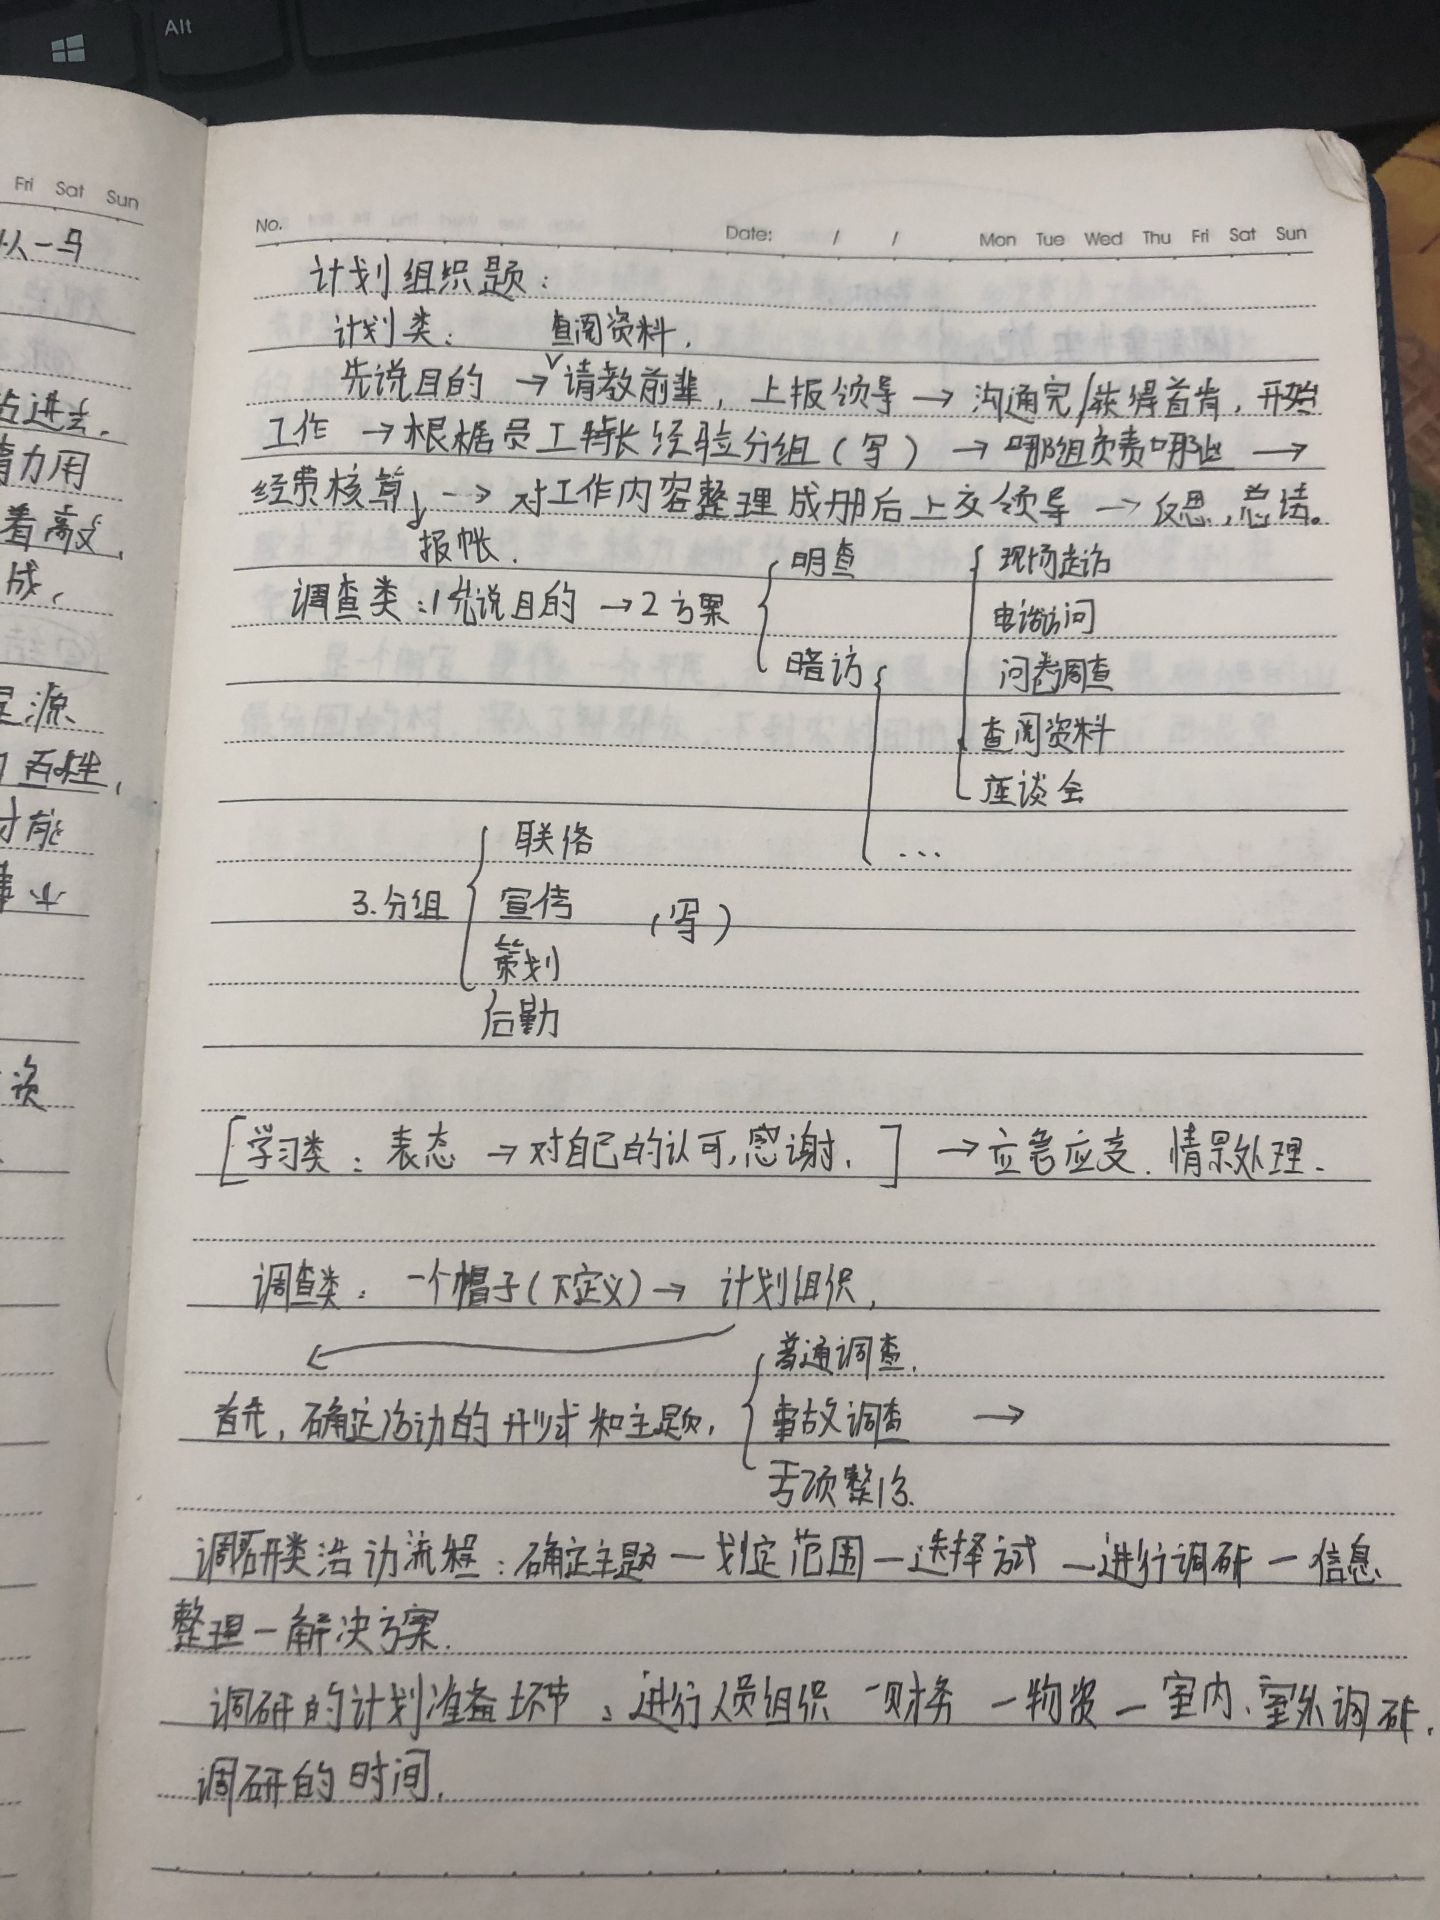 Alt
Fri Sat Sun
No.
Date: / / Mon Tue Wed Thu Fri Sat Sun
计划组织题：
计划类： 查阅资料.
先说目的 → 请教前辈，上报领导 → 沟通完/获得首肯，开始
工作 → 根据员工特长经验分组（写） → 哪组负责哪些 →
经费核算 → 对工作内容整理成册后上交领导 → 反思，总结。
报帐.
调查类：1先说目的 → 2方案
明查
暗访
现场走访
电话访问
问卷调查
查阅资料
座谈会
...
3.分组
联络
宣传 （写）
策划
后勤
[学习类：表态 → 对自己的认可，感谢.] → 应急应变.情景处理.
调查类：一个帽子（下定义）→ 计划组织，
首先，确定活动的形式和主题，
普通调查.
事故调查 →
专项整治.
调研类活动流程：确定主题一划定范围一选择方式一进行调研一信息
整理一解决方案.
调研的计划准备环节：进行人员组织一财务一物资一室内、室外调研.
调研的时间.